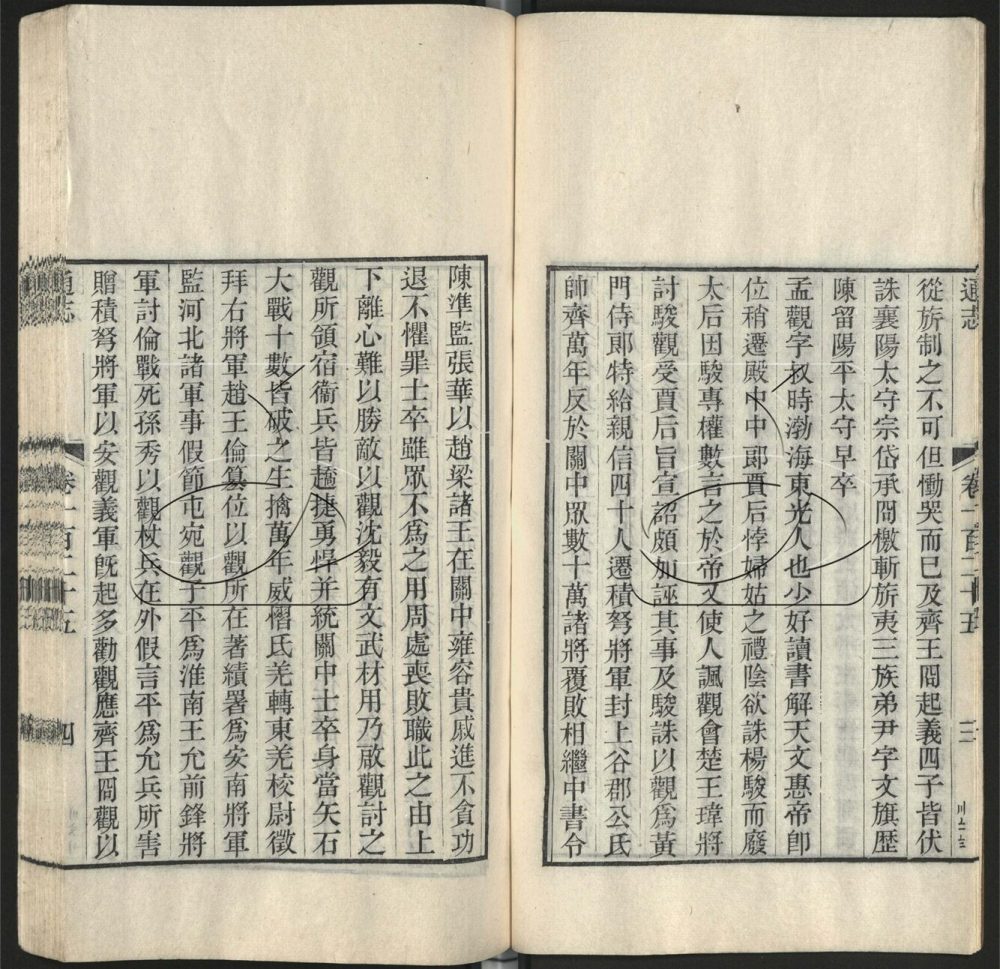 通志
卷一百二十五
三
從旂制之不可但慟哭而已及齊王冏起義四子皆伏
誅襄陽太守宗岱承冏檄斬旂夷三族弟尹字文旗歷
陳留陽平太守早卒
孟觀字叔時渤海東光人也少好讀書解天文惠帝卽
位稍遷殿中中郎賈后悖婦姑之禮陰欲誅楊駿而廢
太后因駿專權數言之於帝又使人諷觀會楚王瑋將
討駿觀受賈后旨宣詔頗加誣其事及駿誅以觀爲黃
門侍郎特給親信四十人遷積弩將軍封上谷郡公氐
帥齊萬年反於關中眾數十萬諸將覆敗相繼中書令
陳準監張華以趙梁諸王在關中雍容貴戚進不貪功
退不懼罪士卒雖眾不爲之用周處喪敗職此之由上
下離心難以勝敵以觀沈毅有文武材用乃啟觀討之
觀所領宿衞兵皆趫捷勇悍并統關中士卒身當矢石
大戰十數皆破之生擒萬年威慴氐羌轉東羌校尉徵
拜右將軍趙王倫篡位以觀所在著績署爲安南將軍
監河北諸軍事假節屯宛觀子平爲淮南王允前鋒將
軍討倫戰死孫秀以觀杖兵在外假言平爲允兵所害
贈積弩將軍以安觀義軍旣起多勸觀應齊王冏觀以
通志
卷一百二十五
四